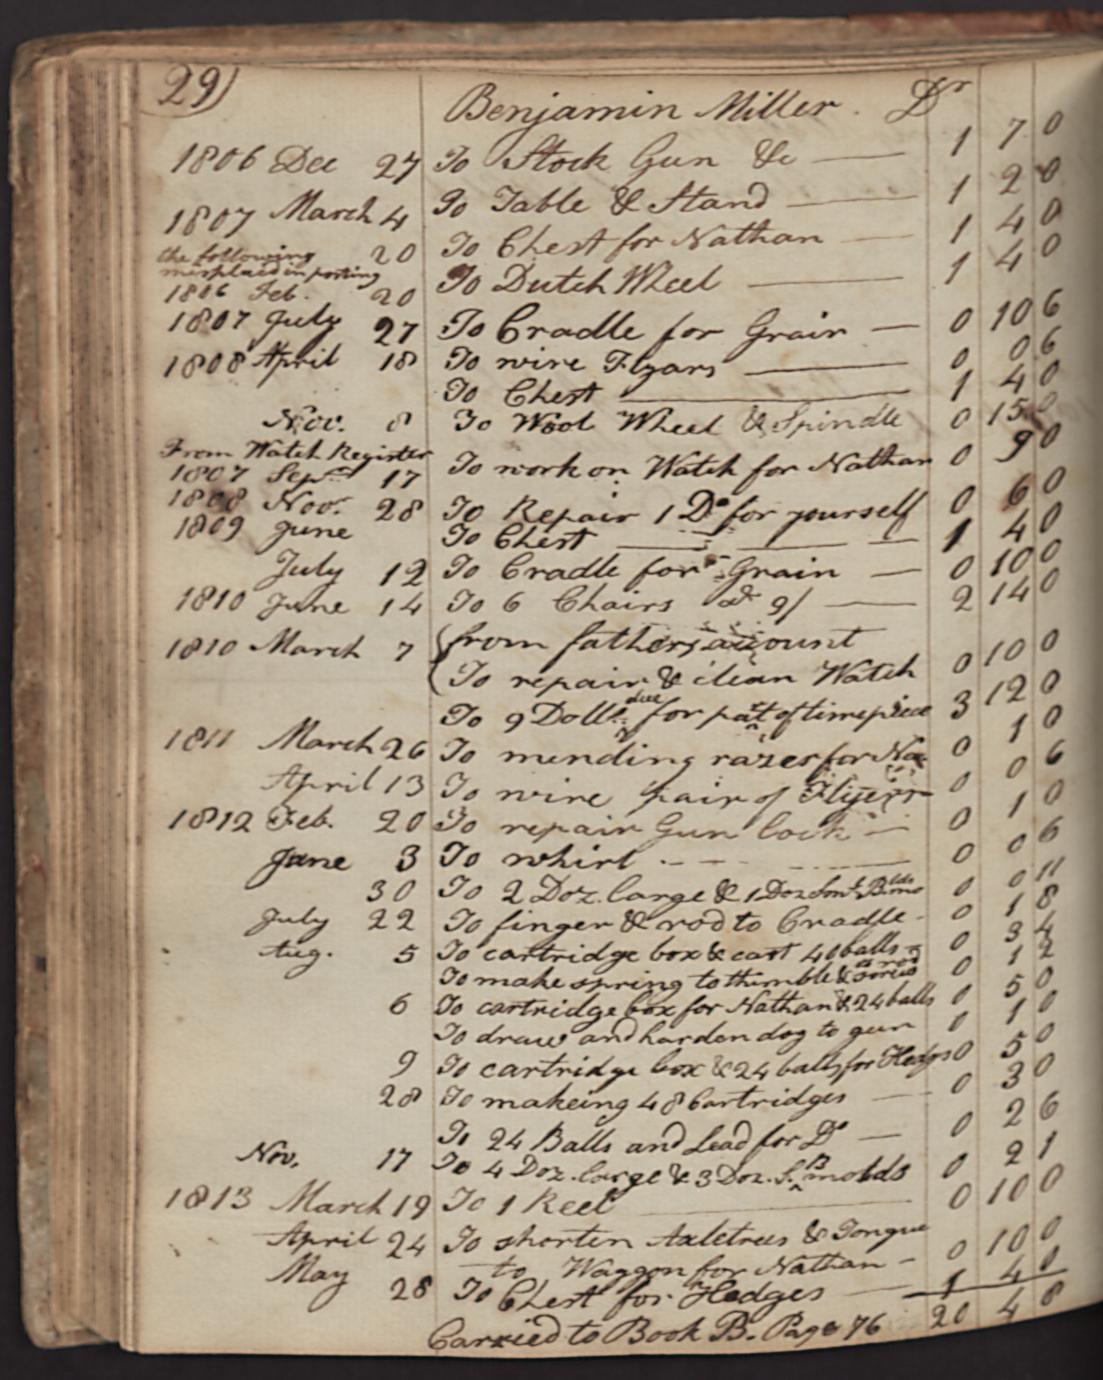 29)
Benjamin Miller. Dr
1806 Dec 27 To Stock Gun &c 1 7 0
1807 March 4 To Table & Stand 1 2 0
20 To Chest for Nathan 1 4 0
the following
misplaced in posting
1806 Feb. 20 To Dutch Wheel 1 4 0
1807 July 27 To Cradle for Grain 0 10 6
1808 April 18 To wire Flyars 0 0 6
To Chest 1 4 0
Nov. 8 To Wool Wheel & Spindle 0 15 0
From Watch Register
1807 Sepr 17 To work on Watch for Nathan 0 9 0
1808 Novr 28 To Repair 1 Do for yourself 0 6 0
1809 June To Chest 1 4 0
July 12 To Cradle for Grain 0 10 0
1810 June 14 To 6 Chairs at 9/ 2 14 0
1810 March 7 (from fathers account
To repair & clean Watch 0 10 0
To 9 Dolls due for pat of timepiece 3 12 0
1811 March 26 To mending razer for Na 0 1 0
April 13 To wire pair of Flyers 0 0 6
1812 Feb. 20 To repair Gun lock 0 1 0
June 3 To whirl 0 0 6
30 To 2 Doz. large & 1 Doz 0 0 11
July 22 To finger & rod to Cradle 0 1 8
Aug. 5 To cartridge box & cast 40 balls 0 3 4
To make spring to thimble & rod 0 1 2
6 To cartridge box for Nathan & 24 balls 0 5 0
To draw and harden dog to gun 0 1 0
9 To cartridge box & 24 balls for Hedges 0 5 0
28 To makeing 48 Cartridges 0 3 0
To 24 Balls and Lead for Do 0 2 6
Nov. 17 To 4 Doz. large & 3 Doz. S. B molds 0 2 1
1813 March 19 To 1 Reel 0 10 0
April 24 To shorten Axletrees & Tongue
to Waggon for Nathan 0 10 0
May 28 To Chest for Hedges 1 4 0
Carried to Book B. Page 76 20 4 8